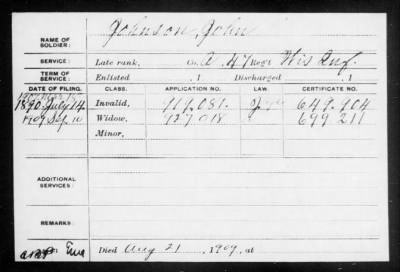 NAME OF SOLDIER: Johnson, John
SERVICE: Late rank, Co. A, 47 Reg't Wis Inf.
TERM OF SERVICE: Enlisted , 1 Discharged , 1
DATE OF FILING. CLASS. APPLICATION NO. LAW. CERTIFICATE NO.
1890 July 14 Invalid, 919.081. 649.904
1909 Sep. 10 Widow, 927 018 699 211
Minor,
ADDITIONAL SERVICES:
REMARKS:
Died Aug 21, 1909, at